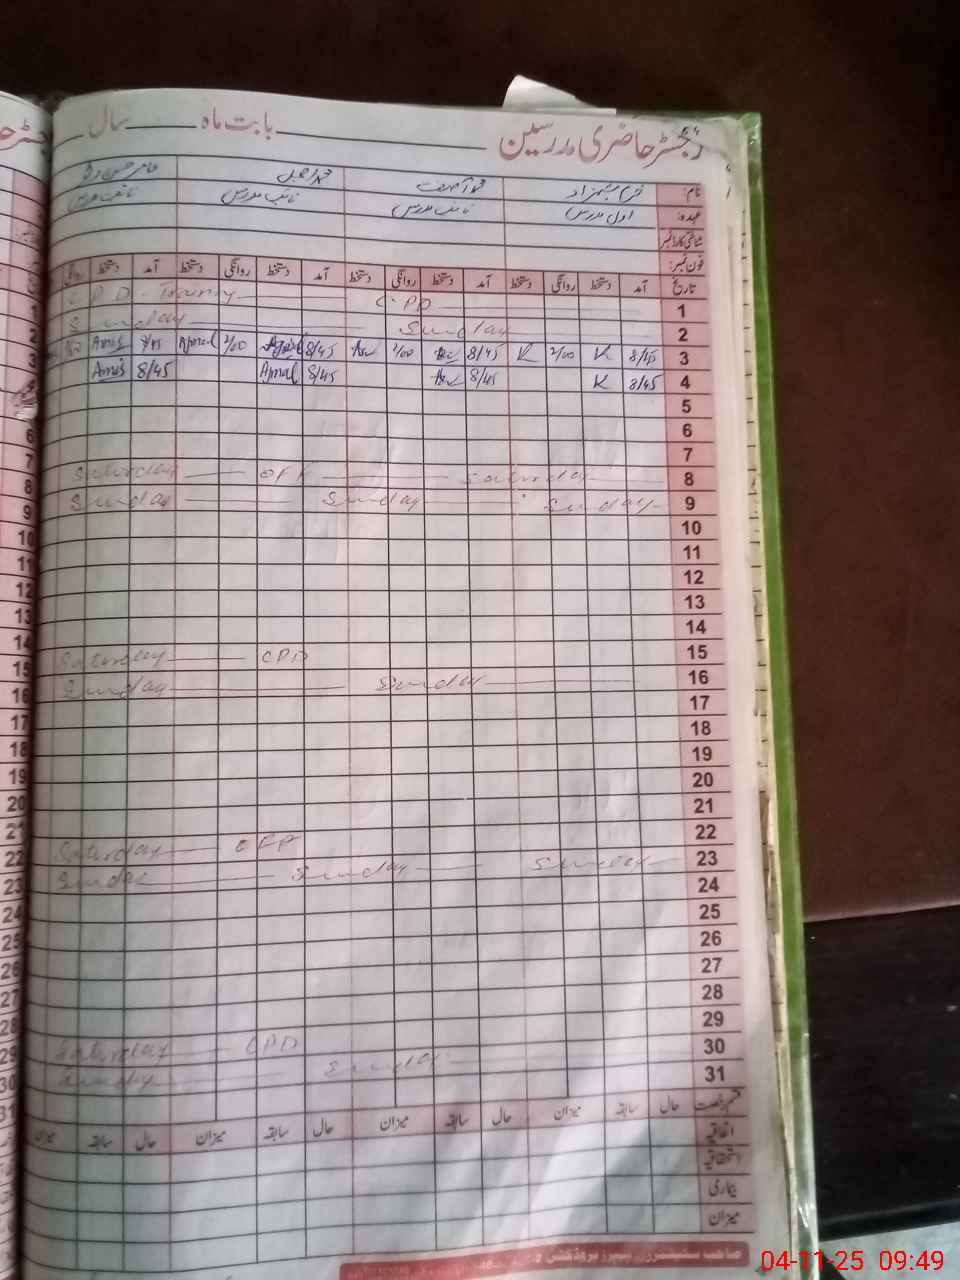 رجسٹر حاضری مدرسین بابت ماہ سال
نام: محمد آصف محمد اجمل
عہدہ: اول مدرس نائب مدرس نائب مدرس نائب مدرس
شناختی کارڈ نمبر
فون نمبر:
تاریخ آمد دستخط روانگی دستخط آمد دستخط روانگی دستخط آمد دستخط روانگی دستخط آمد دستخط روانگی
C P D - Training C. PD 1
Sunday Sunday 2
Amis 8/45 Ajmal 2/00 Ajmal 8/45 2/00 8/45 K 2/00 K 8/45 3
Amis 8/45 Ajmal 8/45 8/45 K 8/45 4
5
6
7
Saturday OFF Saturday 8
Sunday Sunday Sunday 9
10
11
12
13
14
Saturday CPD 15
Sunday Sunday 16
17
18
19
20
21
Saturday OFF 22
Sunday Sunday Sunday 23
24
25
26
27
28
29
Saturday CPD 30
Sunday Sunday 31
قسم رخصت حال سابقہ میزان حال سابقہ میزان حال سابقہ میزان حال سابقہ میزان
اتفاقیہ
استحقاقیہ
بیماری
میزان
04-11-25 09:49